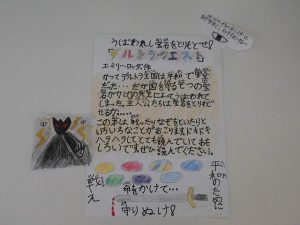 うばわれし宝石をとりもどせ!
デルトラクエスト
エミリー・ロッダ作
かつてデルトラ王国は平和で
だった…だが国を守る七つの宝
石がかげの大王によってうばわれて
しまった。主人公たちは宝石をとりもど
せるか……
この本は、戦ったりなぞをといたりと
いろいろなことがおこります。ドキドキ
ハラハラしてとても読んでいておも
しろいでぜひ読んでください。
平和のために
戦え
命をかけて…
守りぬけ!